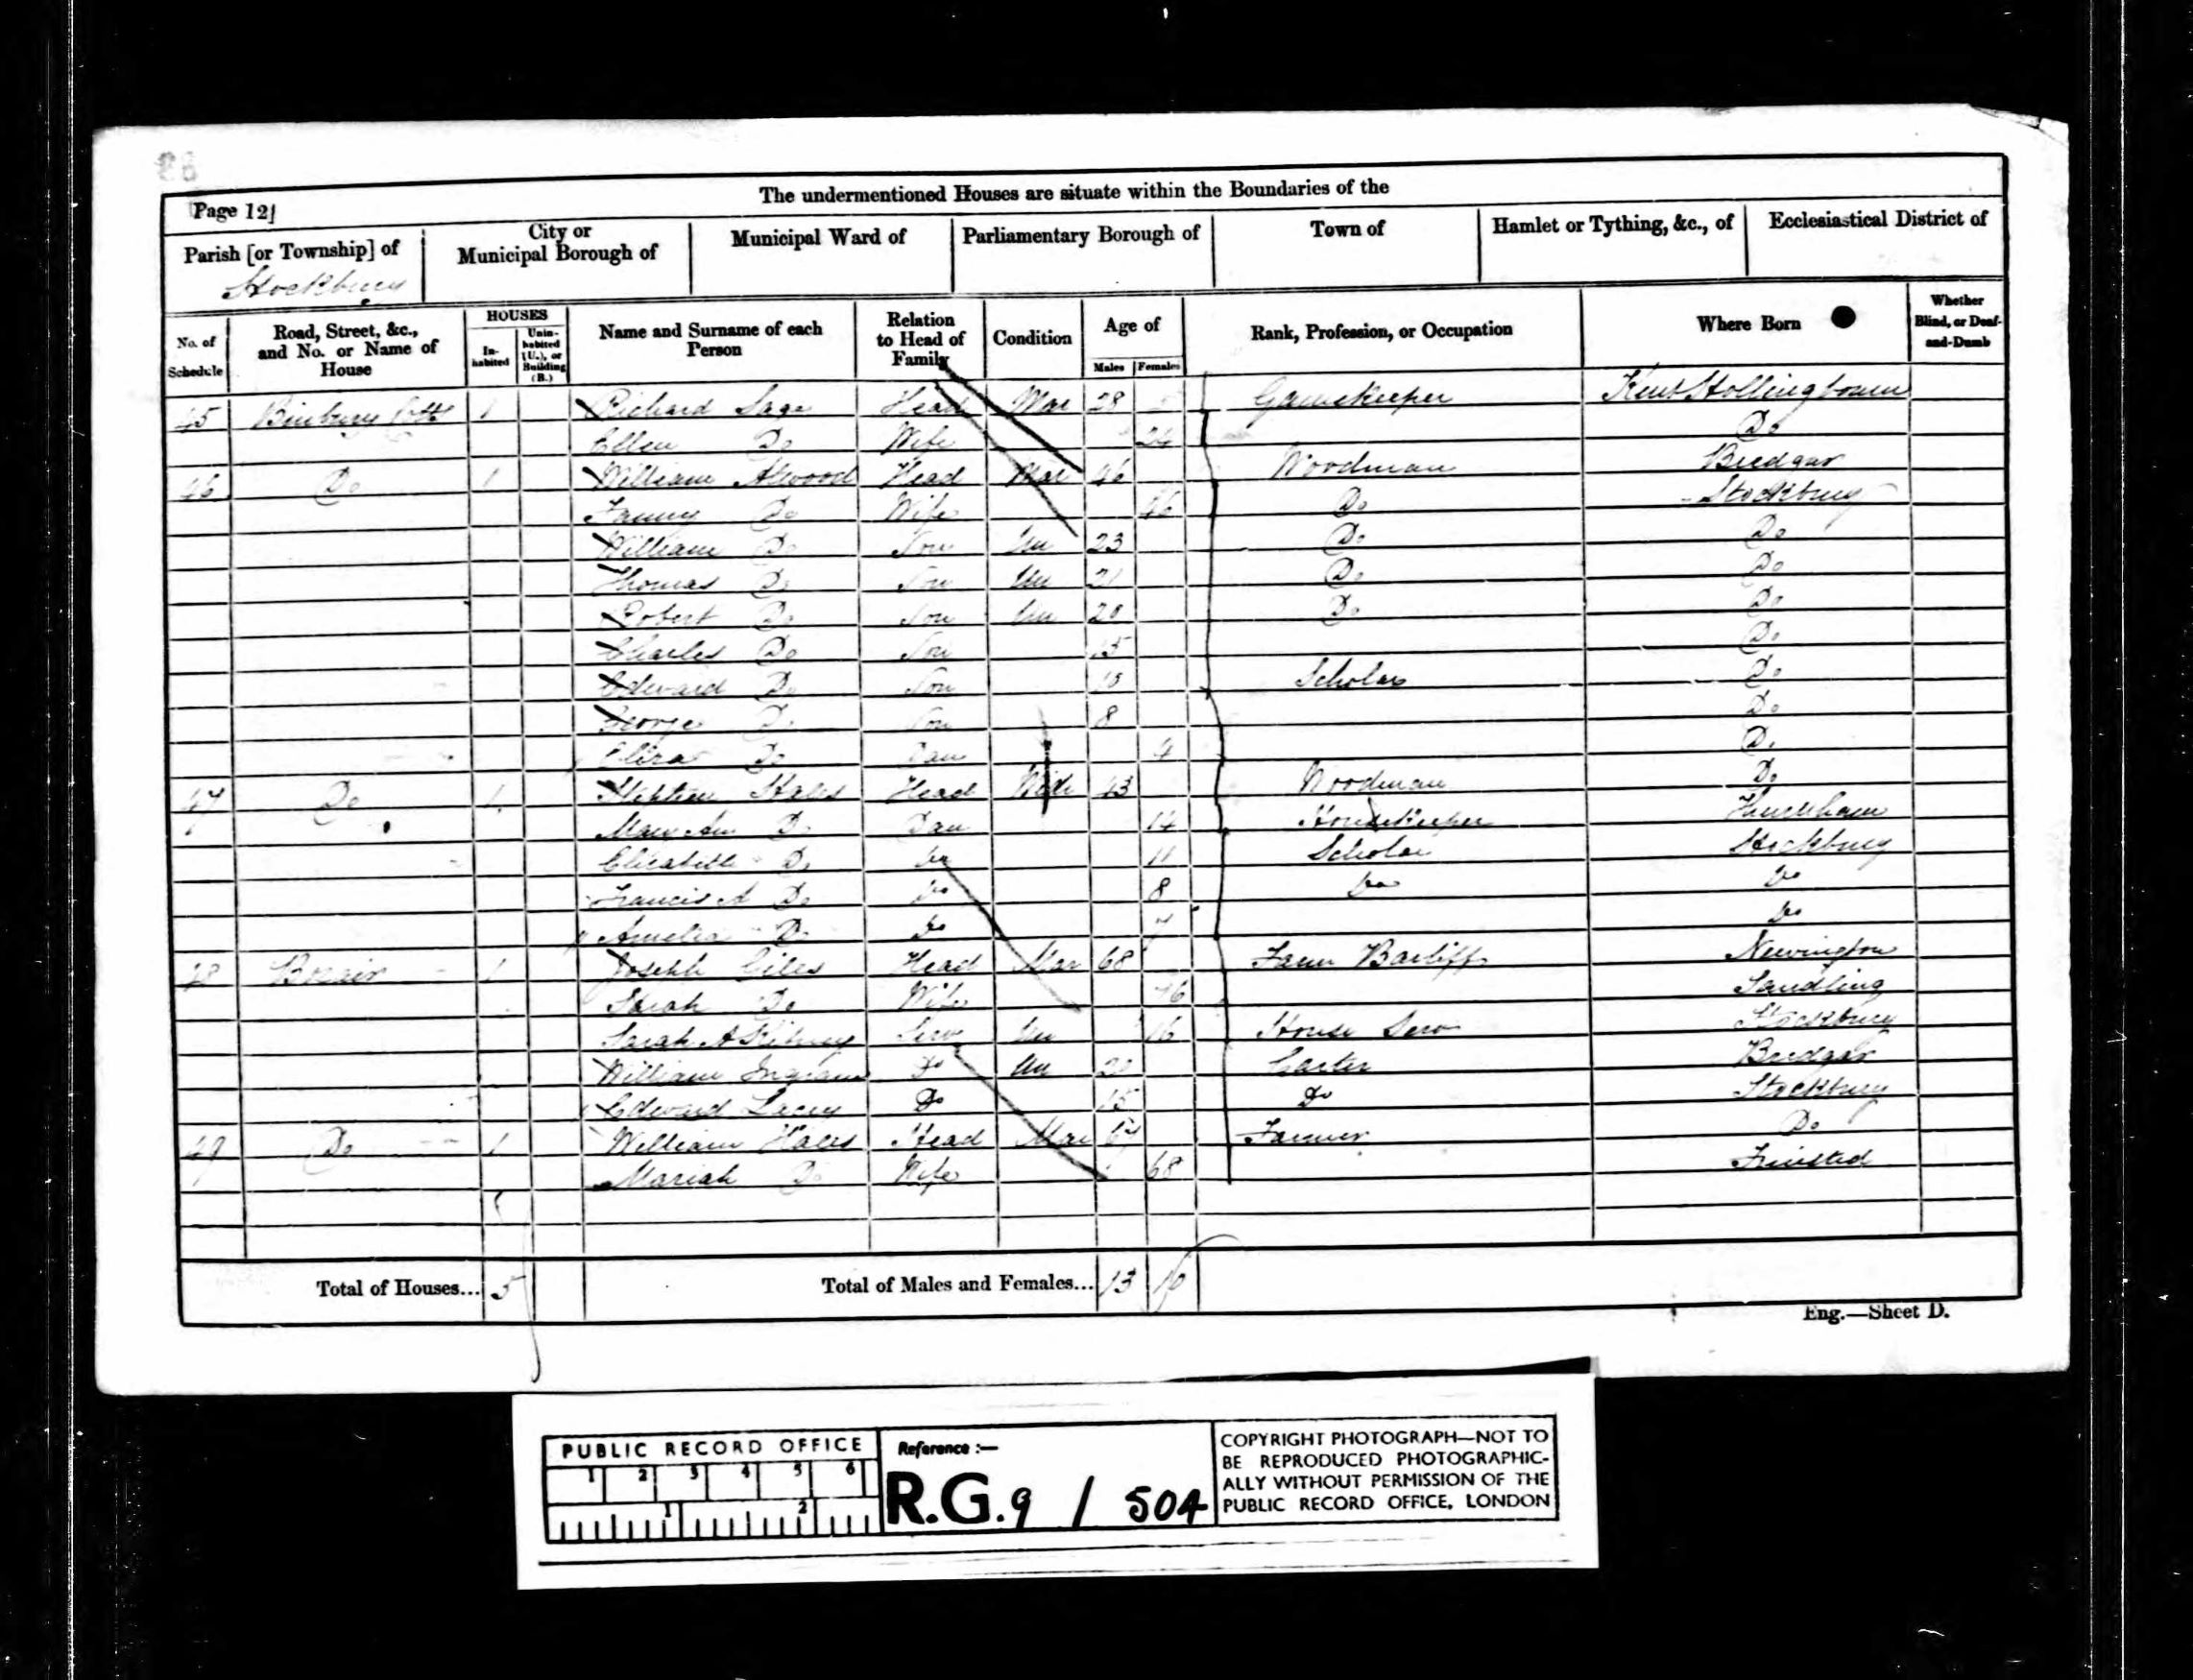 The undermentioned Houses are situate within the Boundaries of the
Page 12]
Parish [or Township] of
City or Municipal Borough of
Municipal Ward of
Parliamentary Borough of
Town of
Hamlet or Tything, &c., of
Ecclesiastical District of
Stockbury
No. of Schedule
Road, Street, &c., and No. or Name of House
HOUSES
Inhabited
Uninhabited (U.), or Building (B.)
Name and Surname of each Person
Relation to Head of Family
Condition
Age of
Males
Females
Rank, Profession, or Occupation
Where Born
Whether Blind, or Deaf-and-Dumb
45 Binbury Cott 1 Richard Sage Head Mar 28 Gamekeeper Kent Hollingbourn
Ellen Do Wife 24 Do
46 Do 1 William Atwood Head Mar 46 Woodman Bredgar
Fanny Do Wife 46 Do Stockbury
William Do Son Un 23 Do Do
Thomas Do Son Un 21 Do Do
Robert Do Son Un 20 Do Do
Charles Do Son 15 Do
Edward Do Son 10 Scholar Do
George Do Son 8 Do
Eliza Do Dau 4 Do
47 Do 1 Stephen Hales Head Wid 43 Woodman Do
Mary Ann Do Dau 14 Housekeeper
Elizabeth Do Do 11 Scholar Stockbury
Francis A Do Do 8 Do Do
Amelia Do Do 7 Do
48 1 Joseph Giles Head Mar 68 Farm Bailiff Newington
Sarah Do Wife 76 Sandling
Sarah A Serv Un 16 House Serv Stockbury
William Ingram Do Un 20 Carter Bredgar
Edward Lacey Do 15 Do Stockbury
49 Do 1 William Hales Head Mar 67 Farmer Do
Mariah Do Wife 68 Frinsted
Total of Houses... 5
Total of Males and Females... 13 10
Eng.—Sheet D.
PUBLIC RECORD OFFICE
1 2 3 4 5 6
1 2
Reference :—
R.G. 9 / 504
COPYRIGHT PHOTOGRAPH—NOT TO
BE REPRODUCED PHOTOGRAPHIC-
ALLY WITHOUT PERMISSION OF THE
PUBLIC RECORD OFFICE, LONDON